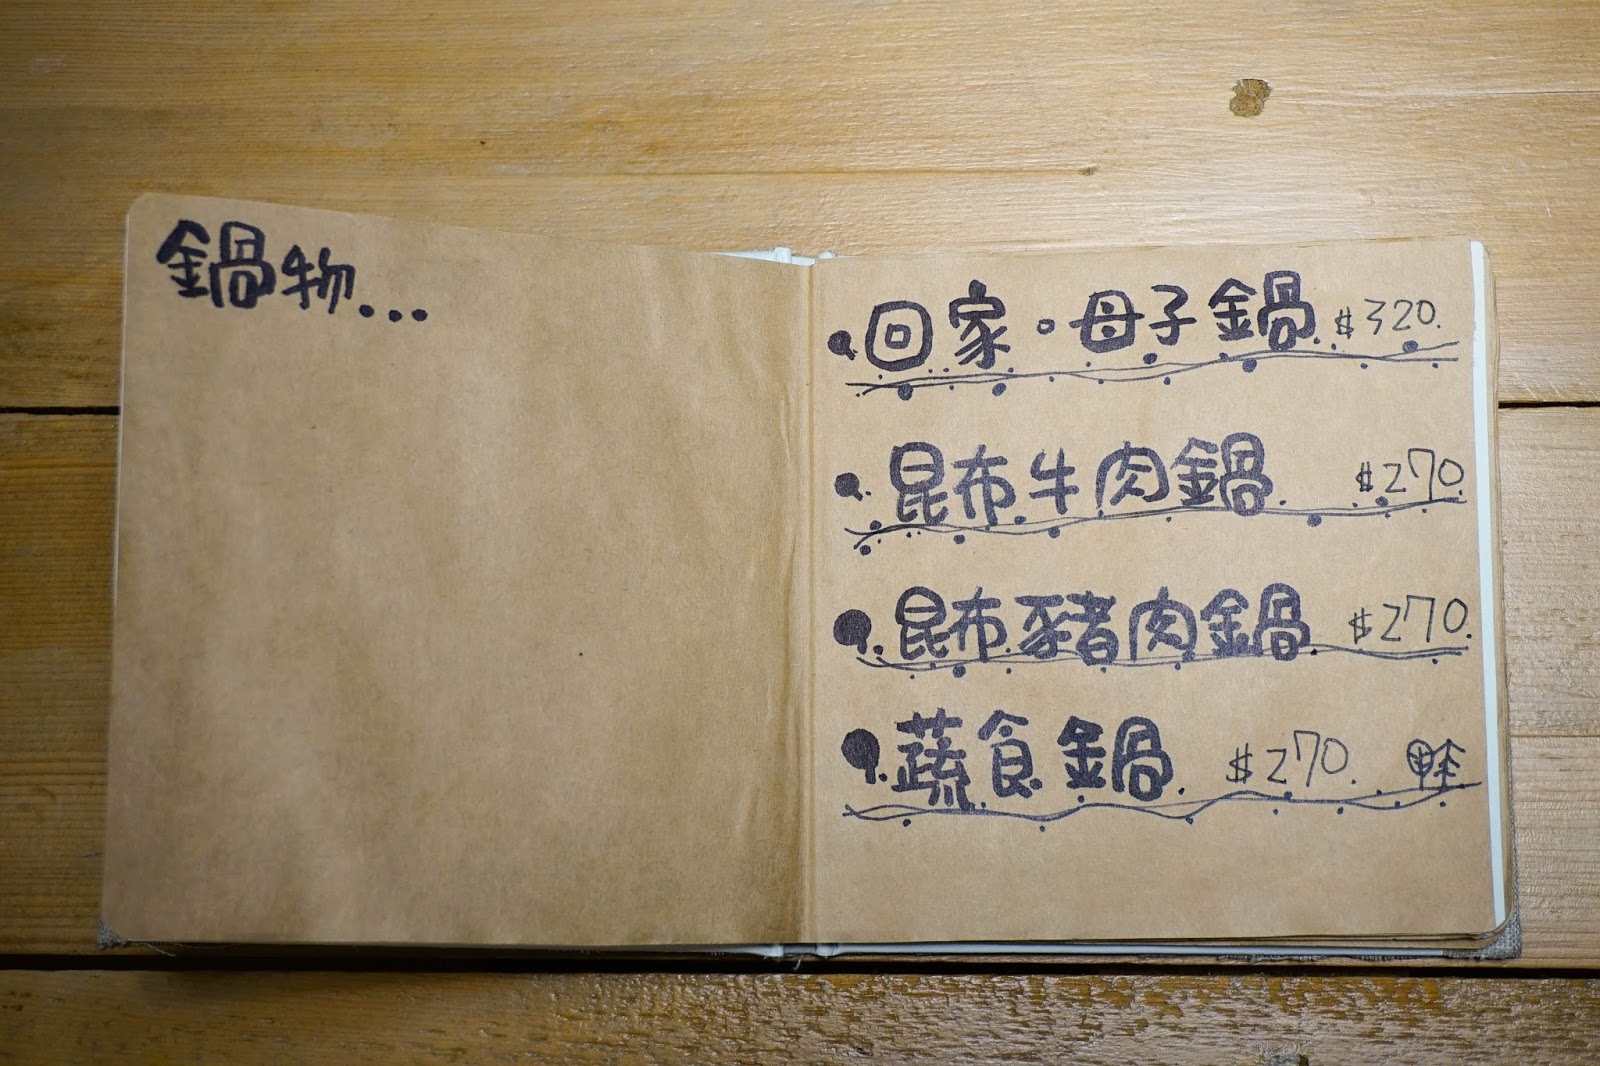 鍋物...
回家。母子鍋 $320.
昆布牛肉鍋. $270.
昆布豬肉鍋. $270.
蔬食鍋. $270.